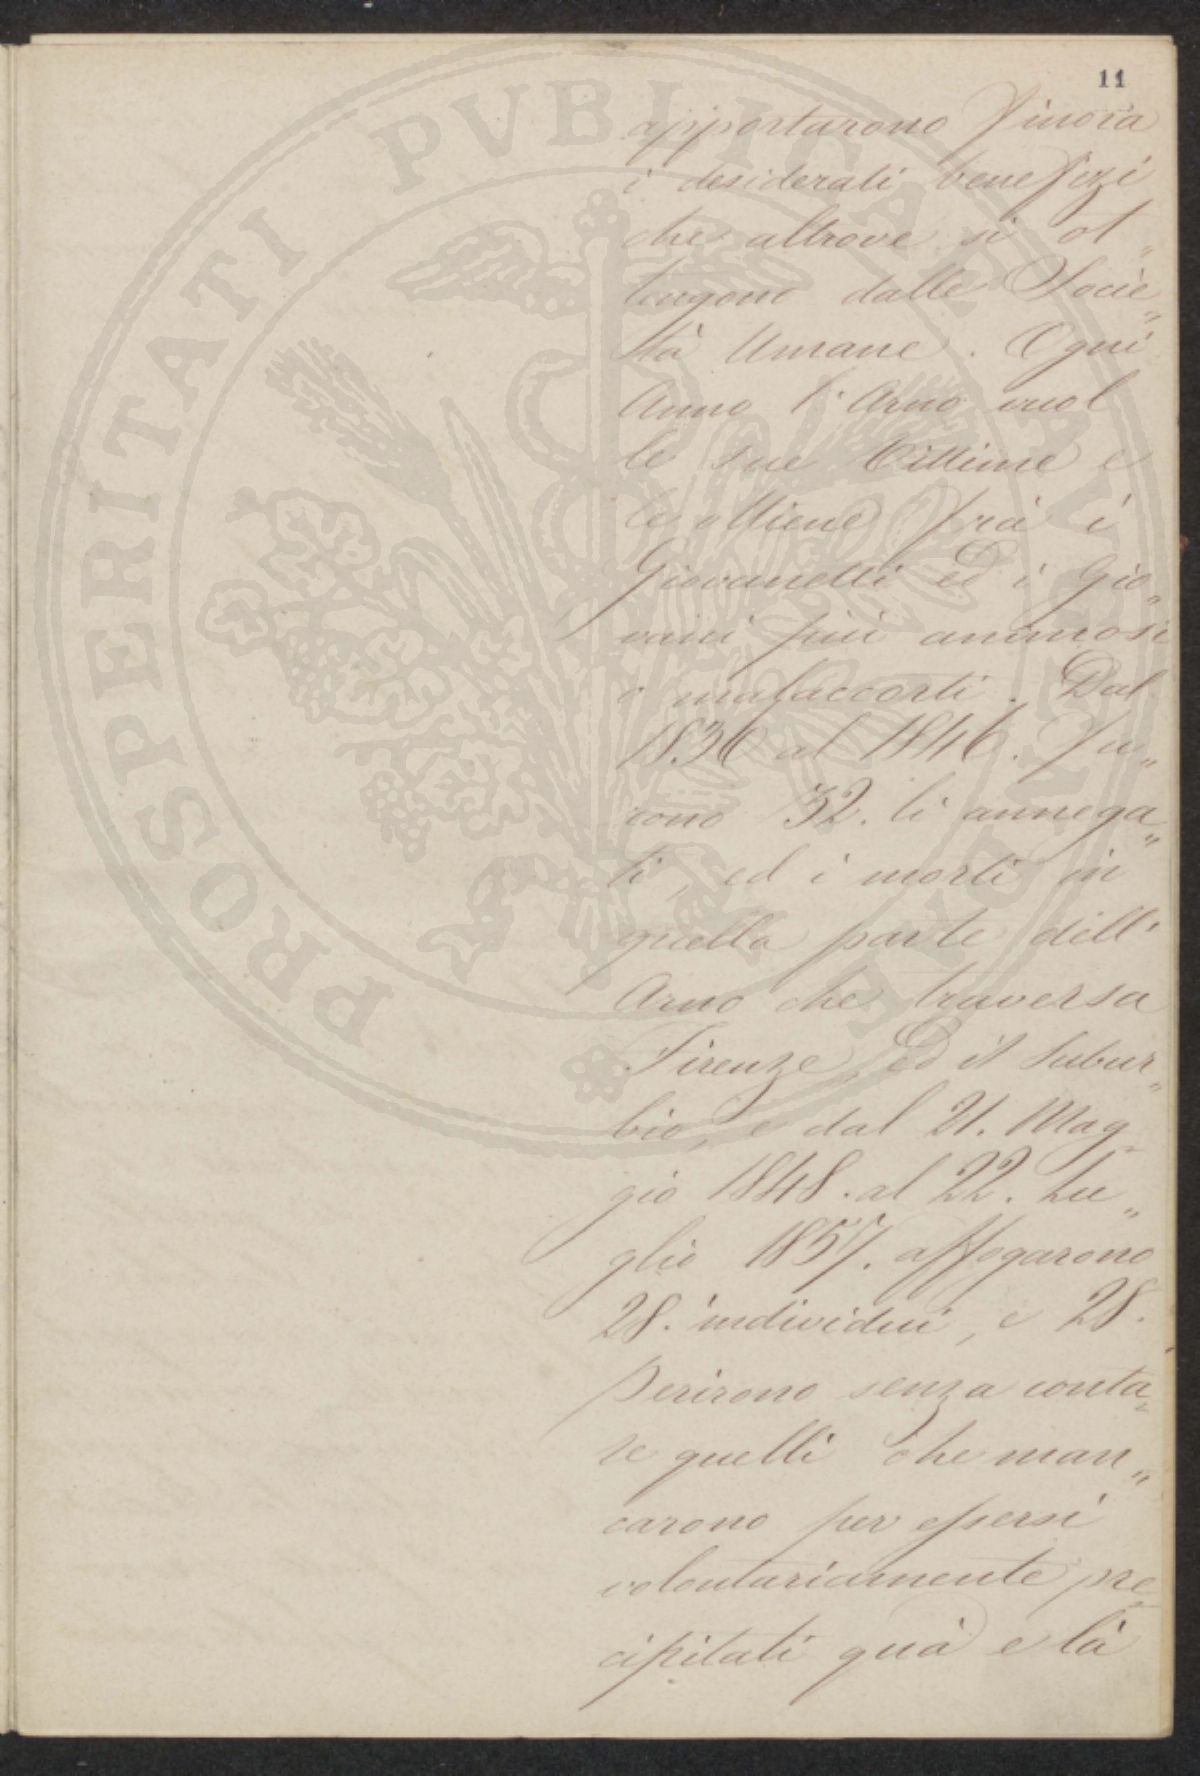 11
apportarono finora
i desiderati benefizi
che altrove si ot„
tengono dalle Socie„
tà Umane. Ogni
Anno l'Arno vuol
le sue Vittime e
le ottiene frà i
Giovanetti ed i Gio„
vani più animosi
o malaccorti. Dal
1836 al 1846. fu„
rono 32. li annega„
ti, ed i morti in
quella parte dell'
Arno che traversa
Firenze, ed il Subur„
bio, e dal 21. Mag„
gio 1848. al 22. Lu„
glio 1857. affogarono
28. individui, e 28.
perirono senza conta„
re quelli che man„
carono per essersi
volontariamente pre„
cipitati quà e là
PROSPERITATI PVBLICAE AVGENDAE